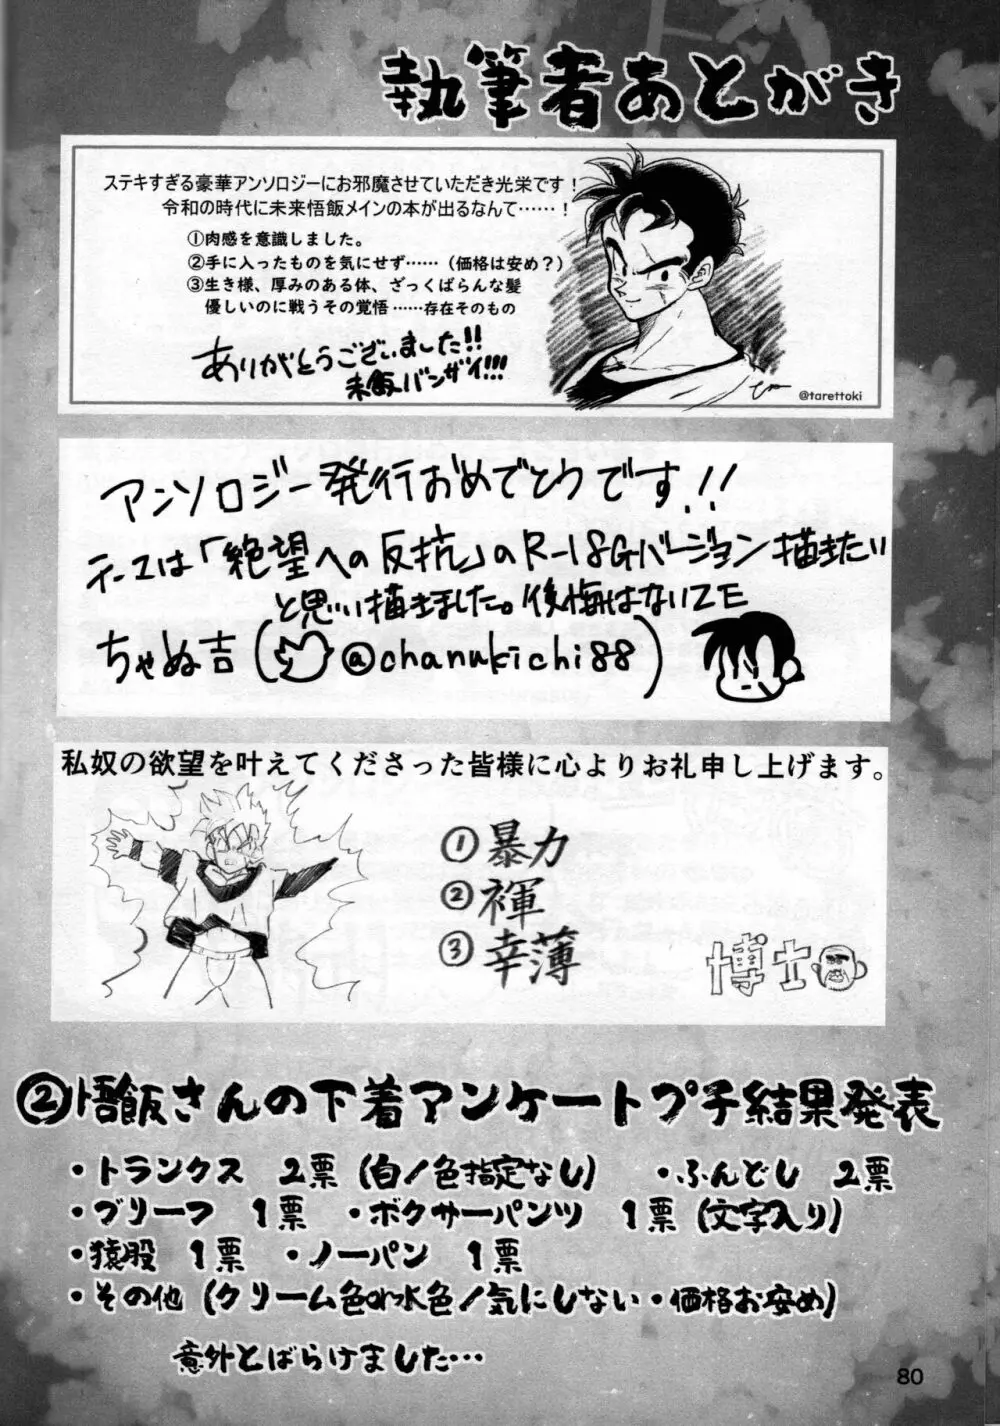 執筆者あとがき
ステキすぎる豪華アンソロジーにお邪魔させていただき光栄です！
令和の時代に未来悟飯メインの本が出るなんて……！
①肉感を意識しました。
②手に入ったものを気にせず……（価格は安め？）
③生き様、厚みのある体、ざっくばらんな髪
優しいのに戦うその覚悟……存在そのもの
ありがとうございました!!
未飯バンザイ!!!
@tarettoki
アンソロジー発行おめでとうです!!
テーマは「絶望への反抗」のR-18Gバージョン描きたい
と思い描きました。後悔はないZE
ちゃぬ吉(@chanukichi88)
私奴の欲望を叶えてくださった皆様に心よりお礼申し上げます。
①暴力
②褌
③幸薄
博士
②悟飯さんの下着アンケートプチ結果発表
・トランクス 2票(白/色指定なし) ・ふんどし 2票
・ブリーフ 1票 ・ボクサーパンツ 1票(文字入り)
・猿股 1票 ・ノーパン 1票
・その他(クリーム色or水色/気にしない・価格お安め)
意外とばらけました…
80